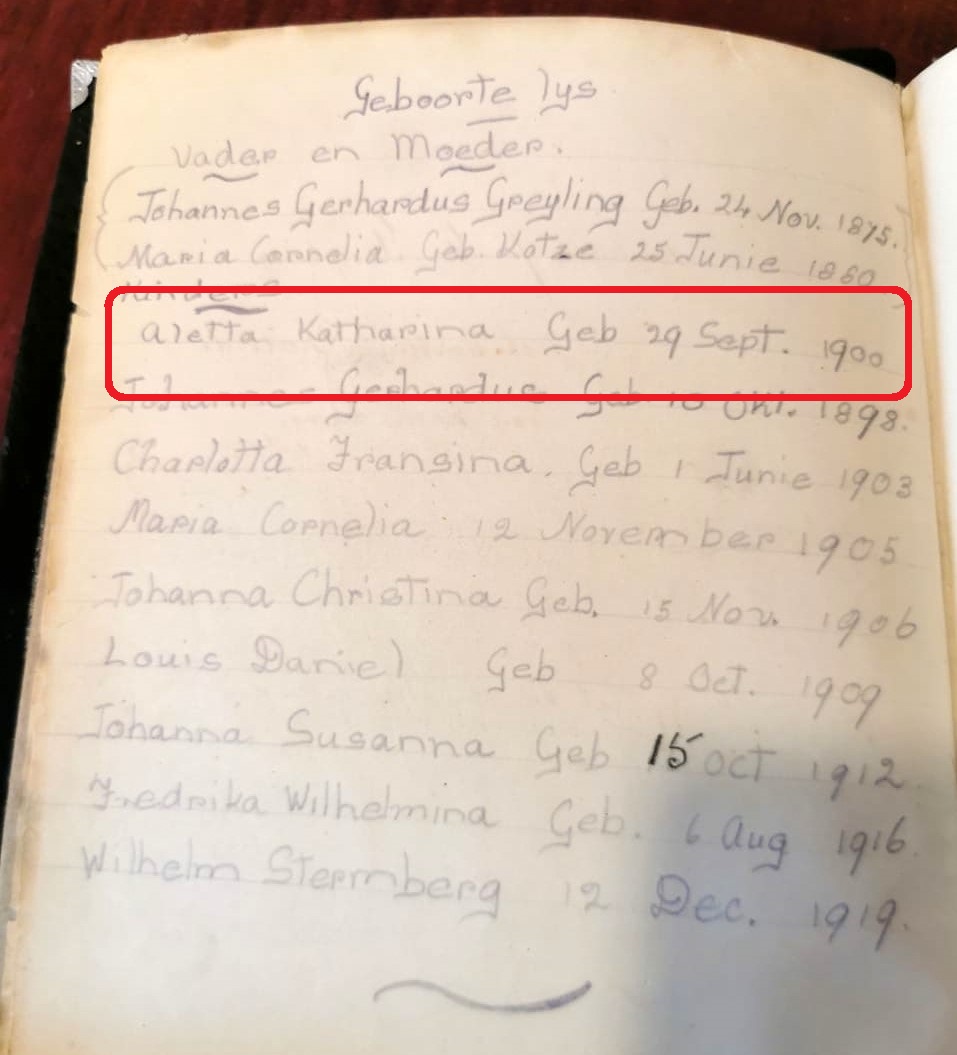 Geboorte lys
Vader en Moeder.
Johannes Gerhardus Greyling Geb. 24 Nov. 1875.
Maria Cornelia Geb. Kotze 25 Junie 1880
Kinders
Aletta Katharina Geb 29 Sept. 1900
Johannes Gerhardus Geb 10 Okt. 1898.
Charlotta Fransina. Geb 1 Junie 1903
Maria Cornelia 12 November 1905
Johanna Christina Geb. 15 Nov. 1906
Louis Daniel Geb 8 Oct. 1909
Johanna Susanna Geb 15 Oct 1912
Fredrika Wilhelmina Geb. 6 Aug 1916.
Wilhelm Stermberg 12 Dec. 1919.